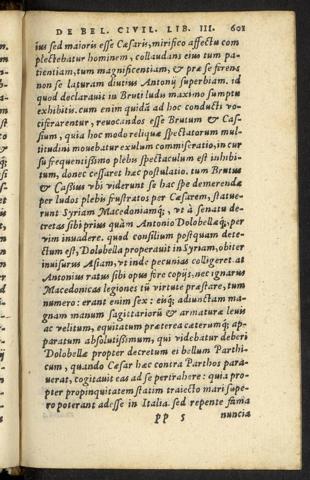 DE BEL. CIVIL. LIB. III. 601
ius sed maioris esse Cæsaris, mirifico affectu com
plectebatur hominem, collaudans eius tum pa-
tientiam, tum magnificentiam, & præ se ferens
non se laturam diutius Antonij superbiam. id
quod declarauit in Bruti ludis maximo sumptu
exhibitis. cum enim quidã ad hoc conducti vo-
ciferarentur, reuocandos esse Brutum & Cas-
sium, quia hoc modo reliquæ spectatorum mul-
titudini mouebatur exulum commiseratio, in cur
sũ frequentissimo plebis spectaculum est inhibi-
tum, donec cessaret hæc postulatio. tum Brutus
& Cassius vbi viderunt se hac spe demerendæ
per ludos plebis frustratos per Cæsarem, statue-
runt Syriam Macedoniamq;, vt à senatu de-
cretas sibi prius quàm Antonio Dolobellæq;, per
vim inuadere. quod consilium postquam dete-
ctum est, Dolobella properauit in Syriam, obiter
inuisurus Asiam, vt inde pecunias colligeret. at
Antonius ratus sibi opus fore copijs, nec ignarus
Macedonicas legiones tũ virtute præstare, tum
numero: erant enim sex: eisq; adiunctam ma-
gnam manum sagittariorũ & armaturæ leuis
ac velitum, equitatum præterea cæterumq; ap-
paratum absolutissimum, qui videbatur deberi
Dolobellæ propter decretum ei bellum Parthi-
cum, quando Cæsar hæc contra Parthos para-
uerat, cogitauit eas ad se pertrahere: quia pro-
pter propinquitatem statim traiecto mari supe-
ro poterant adesse in Italia. sed repente fama
PP 5 nuncia